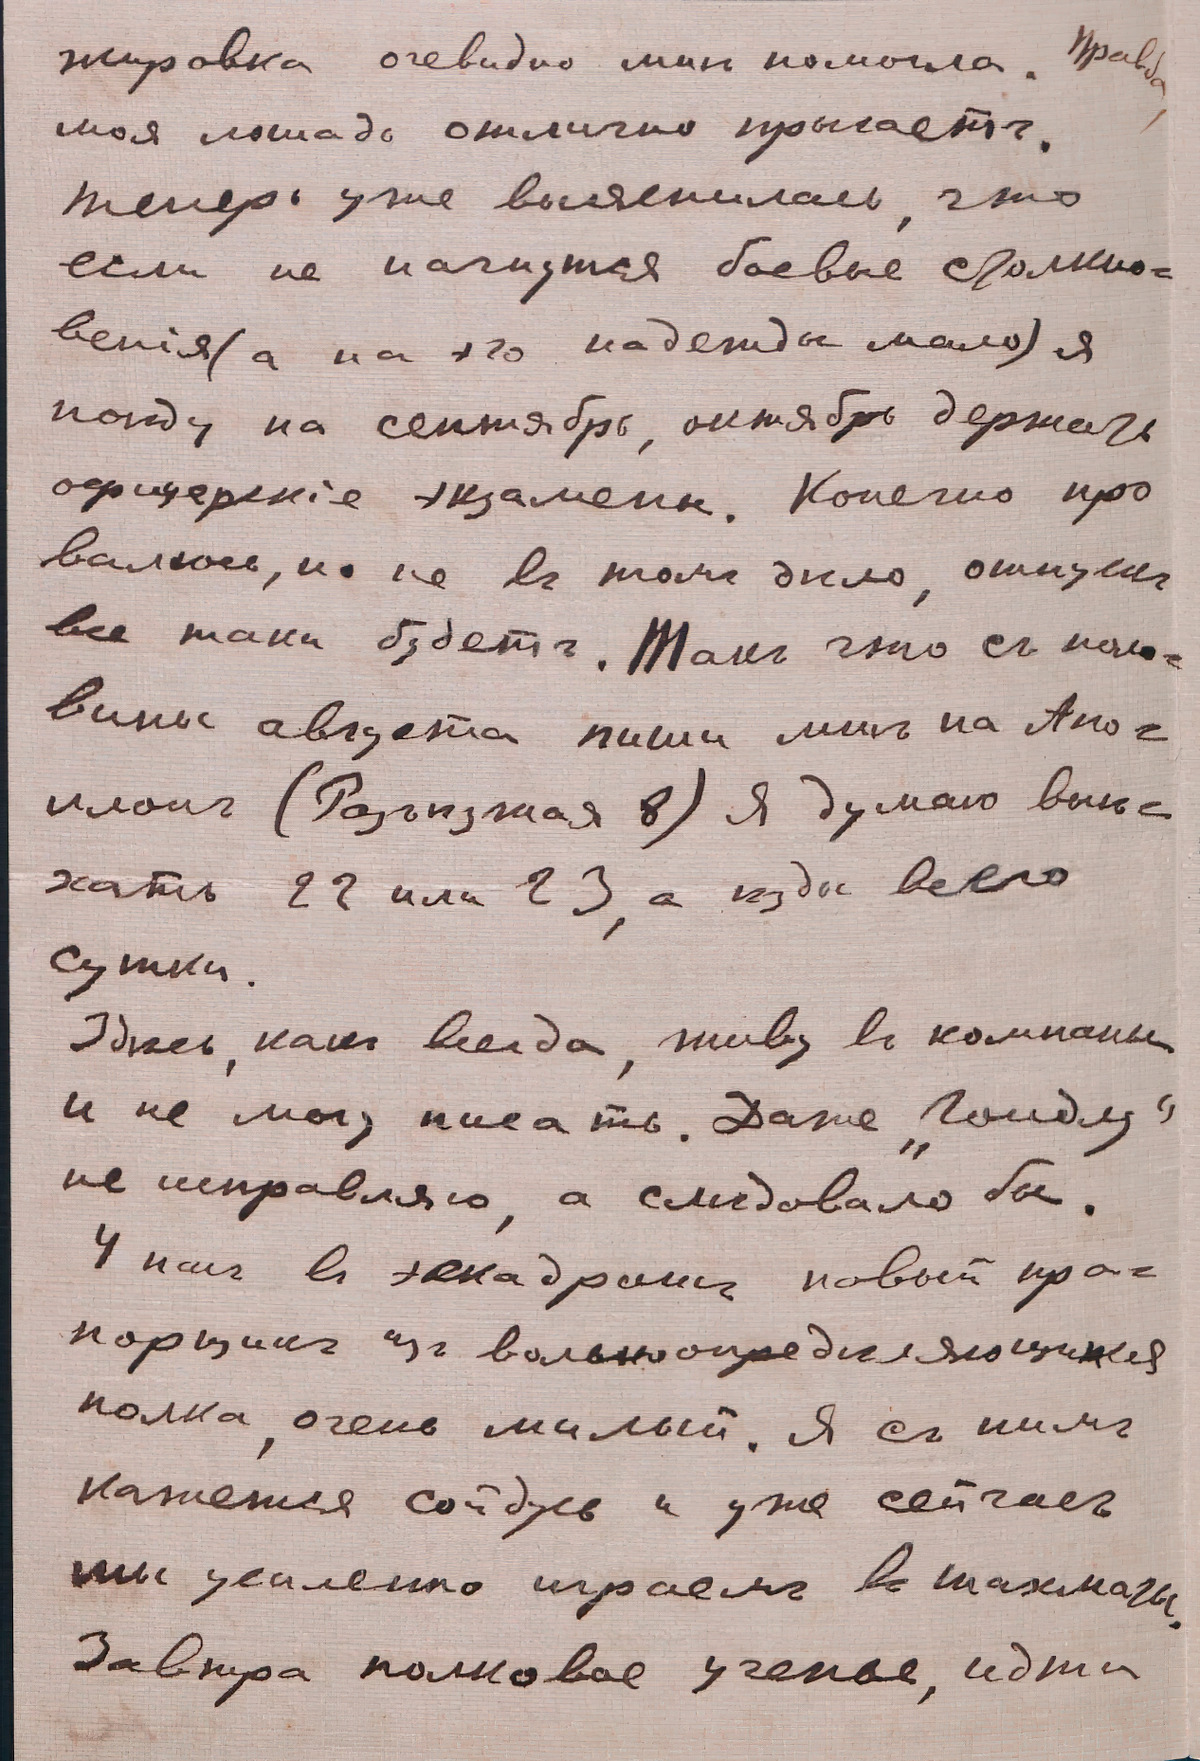 жировка очевидно мнѣ помогла. Правда,
моя лошадь отлично прыгаетъ.
Теперь уже выяснилась, что
если не начнутся боевые столкно=
венія (а на это надежды мало) я
поѣду на сентябрь, октябрь держать
офицерскіе экзамены. Конечно про
валюсь, но не въ томъ дѣло, отпускъ
все таки будетъ. Такъ что съ поло=
вины августа пиши мнѣ на Апо=
ллонъ (Разъѣзжая 8) Я думаю выѣ=
хать 22 или 23, а ѣзды всего
сутки.
Здѣсь, какъ всегда, живу въ компаньи
и не могу писать. Даже „Гондлу“
не исправляю, а слѣдовало бы.
У насъ въ эскадронѣ новый пра=
порщикъ изъ вольноопредѣляющихся
полка, очень милый. Я съ нимъ
кажется сойдусь и уже сейчасъ
мы усиленно играемъ въ шахматы.
Завтра полковое ученье, идти